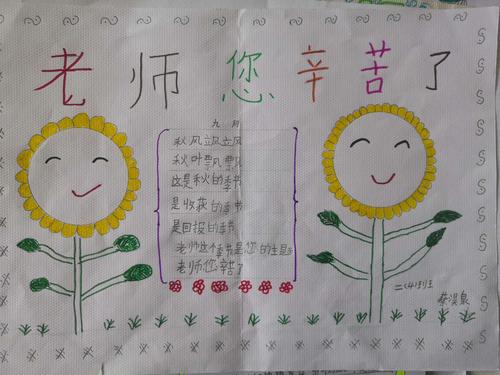 老师您辛苦了
九月
秋风
秋叶飘飘
这是秋的季节
是收获的季节
是回报的季节
老师这个季节是您的主题
老师您辛苦了
二(4)班